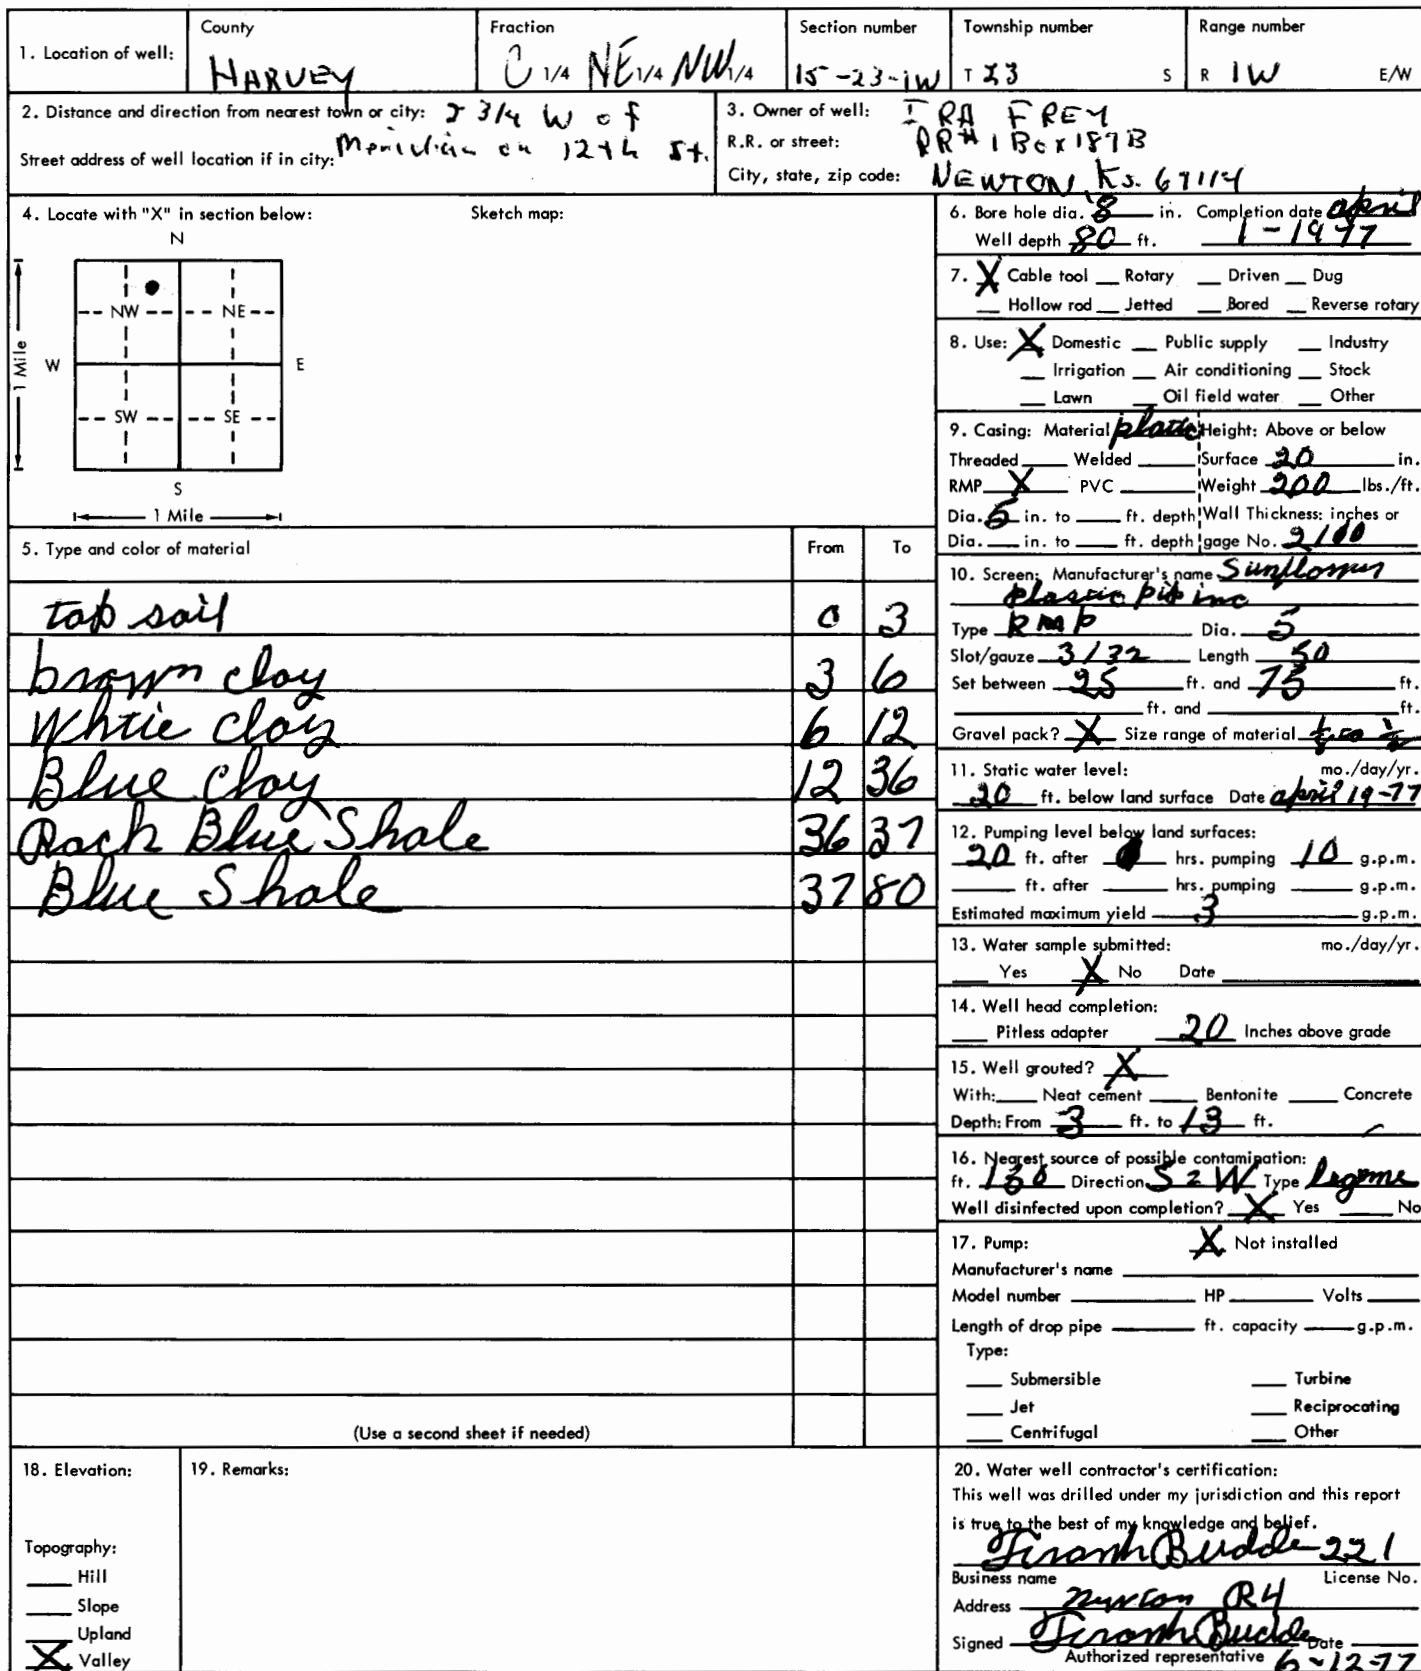 1. Location of well: County HARVEY Fraction C 1/4 NE 1/4 NW 1/4 Section number 15-23-1W Township number T 23 S Range number R 1W E/W
2. Distance and direction from nearest town or city: 2 3/4 W of
Street address of well location if in city: Meridian on 12th St.
3. Owner of well: IRA FREY
R.R. or street: RR#1 Box 187B
City, state, zip code: NEWTON, Ks. 67114
4. Locate with "X" in section below: Sketch map:
N
NW NE
1 Mile W E
SW SE
S
1 Mile
5. Type and color of material From To
top soil 0 3
brown clay 3 6
Whtie clay 6 12
Blue clay 12 36
Rock Blue Shale 36 37
Blue Shale 37 80
(Use a second sheet if needed)
6. Bore hole dia. 8 in. Completion date april
Well depth 80 ft. 1-1977
7. X Cable tool Rotary Driven Dug
Hollow rod Jetted Bored Reverse rotary
8. Use: X Domestic Public supply Industry
Irrigation Air conditioning Stock
Lawn Oil field water Other
9. Casing: Material plastic Height: Above or below
Threaded Welded Surface 20 in.
RMP X PVC Weight 200 lbs./ft.
Dia. 5 in. to ft. depth Wall Thickness: inches or
Dia. in. to ft. depth gage No. 2/00
10. Screen: Manufacturer's name Sunflower
plastic pip inc
Type RMP Dia. 5
Slot/gauze 3/32 Length 50
Set between 25 ft. and 75 ft.
ft. and ft.
Gravel pack? X Size range of material
11. Static water level: mo./day/yr.
20 ft. below land surface Date april 19-77
12. Pumping level below land surfaces:
20 ft. after hrs. pumping 10 g.p.m.
ft. after hrs. pumping g.p.m.
Estimated maximum yield 3 g.p.m.
13. Water sample submitted: mo./day/yr.
Yes X No Date
14. Well head completion:
Pitless adapter 20 Inches above grade
15. Well grouted? X
With: Neat cement Bentonite Concrete
Depth: From 3 ft. to 13 ft.
16. Nearest source of possible contamination:
ft. 130 Direction S Type
Well disinfected upon completion? X Yes No
17. Pump: X Not installed
Manufacturer's name
Model number HP Volts
Length of drop pipe ft. capacity g.p.m.
Type:
Submersible Turbine
Jet Reciprocating
Centrifugal Other
18. Elevation:
Topography:
Hill
Slope
Upland
X Valley
19. Remarks:
20. Water well contractor's certification:
This well was drilled under my jurisdiction and this report
is true to the best of my knowledge and belief.
Budde 221
Business name License No.
Address R4
Signed Budde Date
Authorized representative 6-12-77